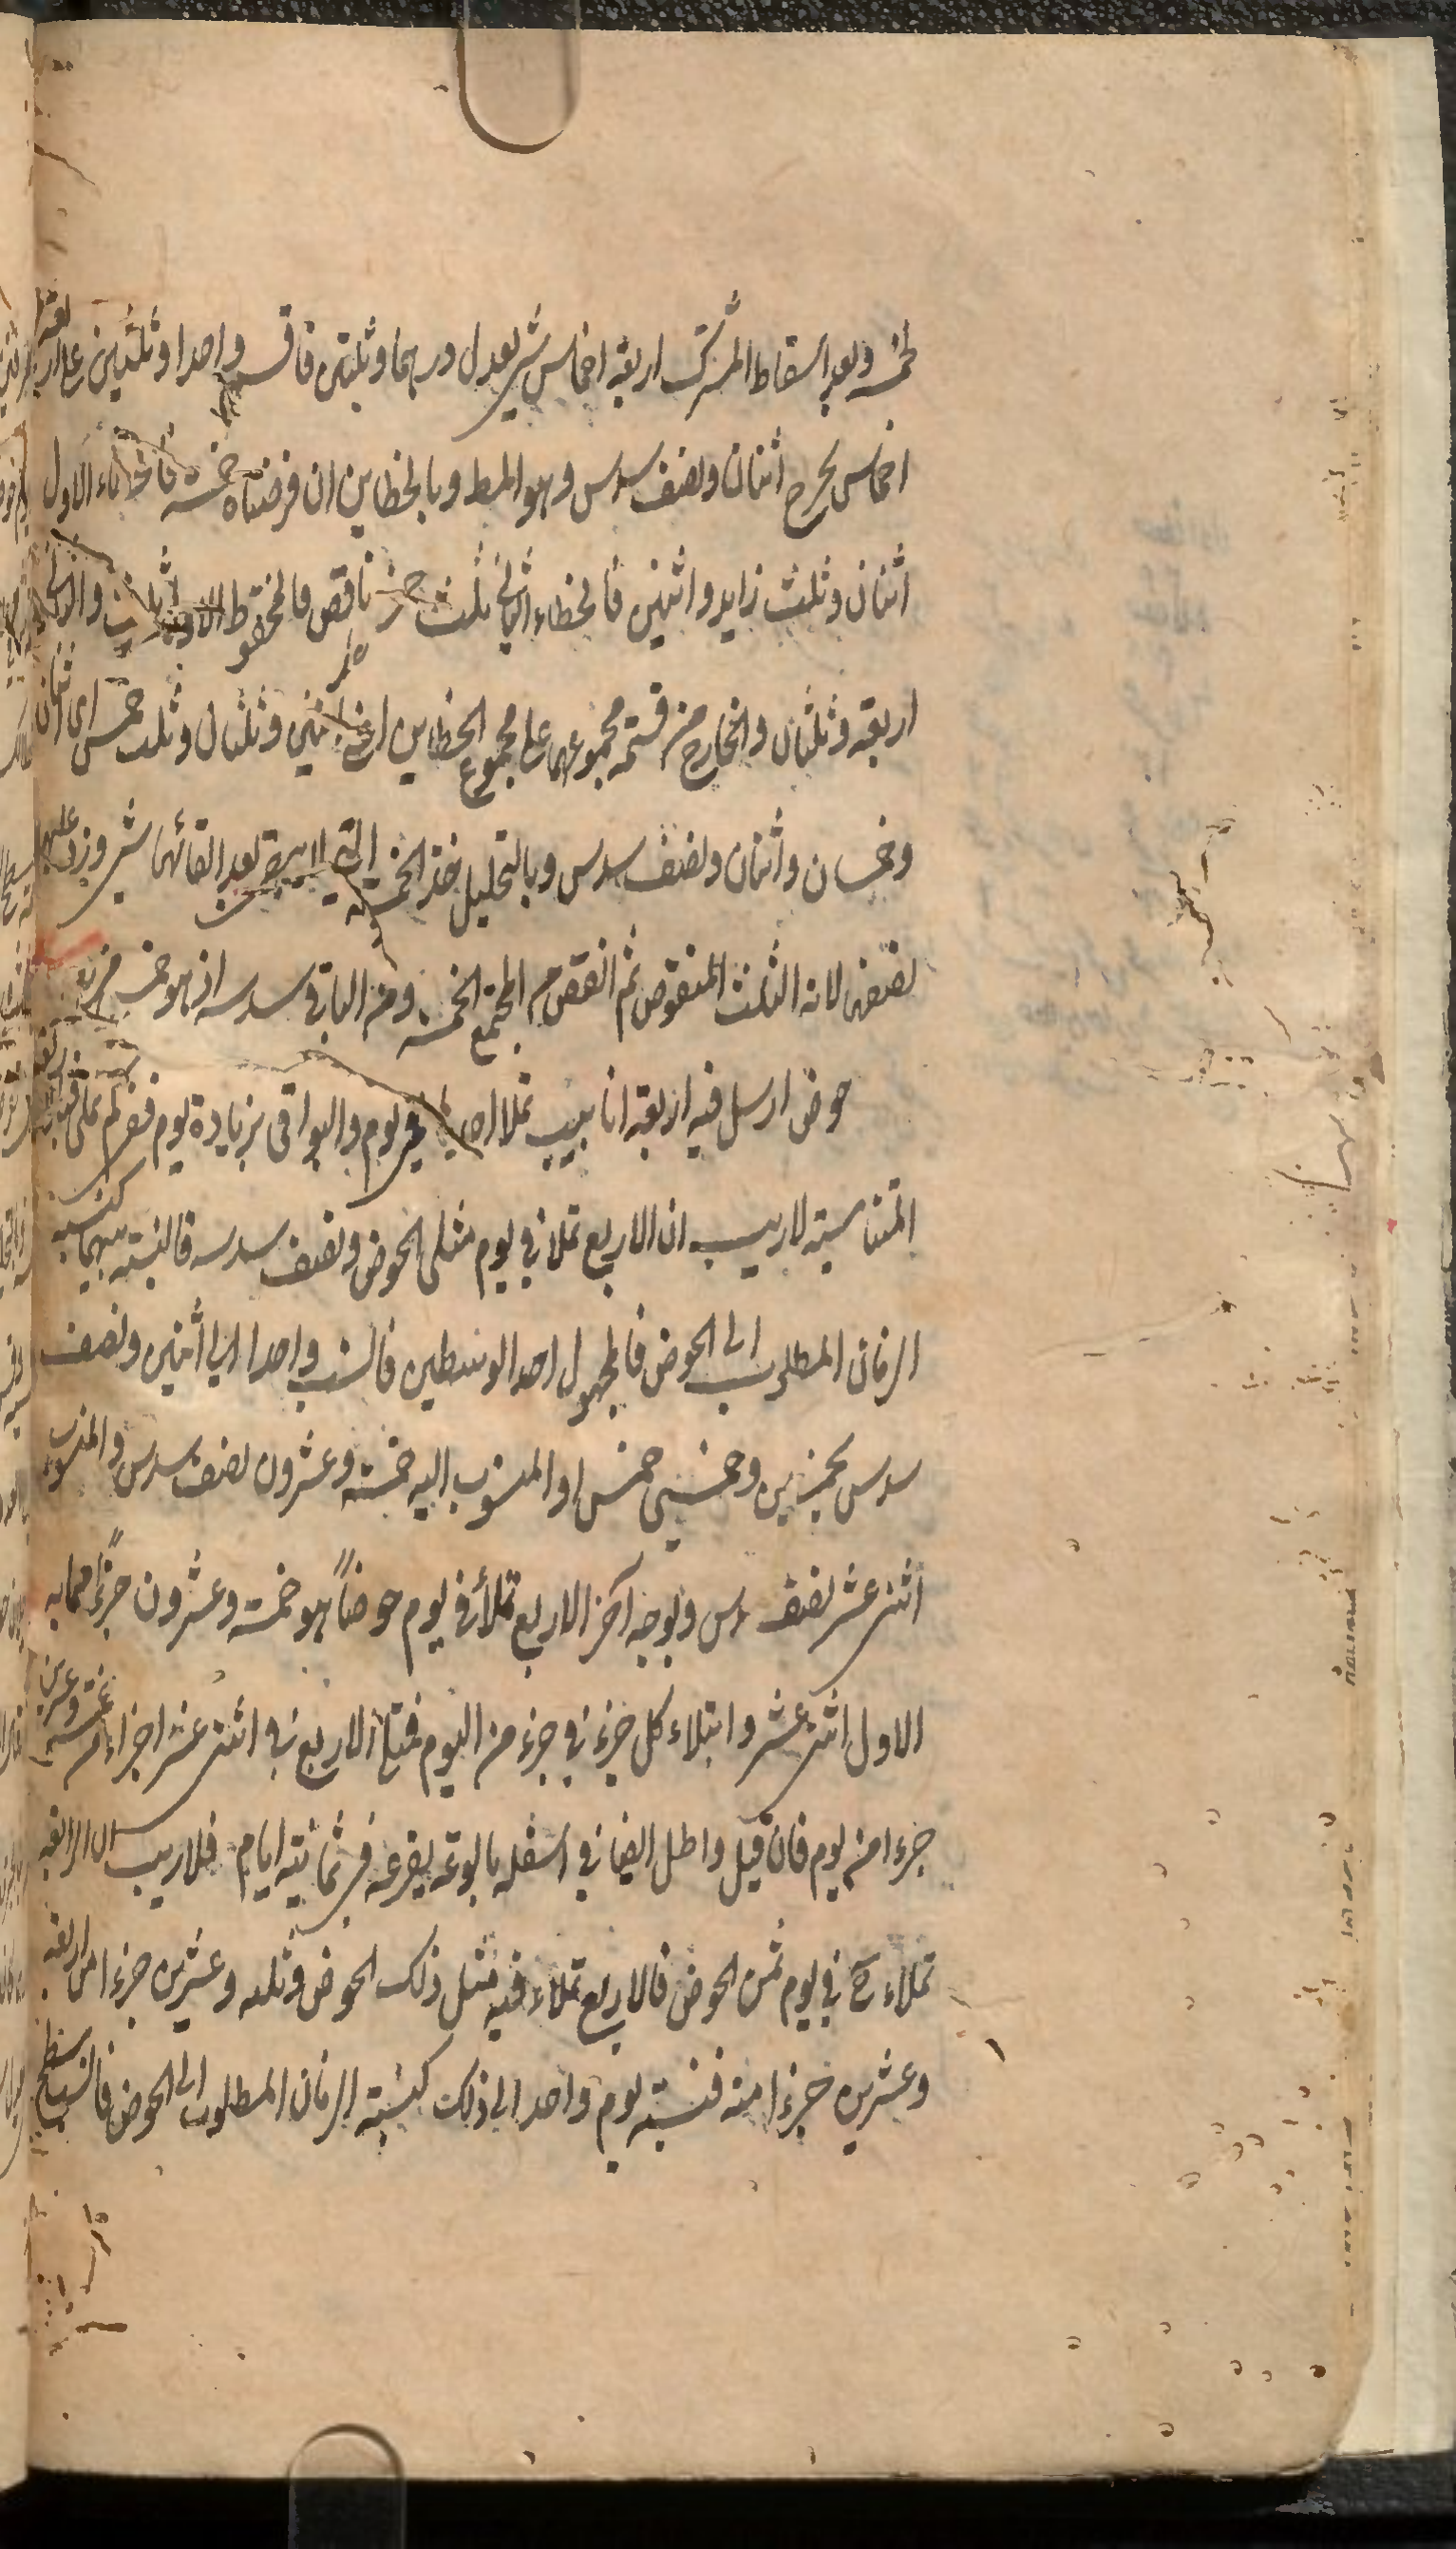 لخمسه وبعد اسقاط المشترك اربعة اخماس شئ يعدل درهما وثلثين فاقسم واحدا وثلثين على اربعة
اخماس يخرج اثنان ونصف سدس وهو المط وبالخطاين ان فرضناه خمسة فالخطاء الاول
اثنان وثلث زايد واثنين فالخطاء الثانى ثلث خمس ناقص فالمحفوظ الاول ثلث والثانى
اربعة وثلثان والخارج من قسمة مجموعهما على مجموع الخطاين اعنى اثنين وثلثان وثلث خمس اى اثنان
وخمسان اثنان ونصف سدس وبالتحليل خذ الخمسة التى لا يبقى بعد القائها شئ وزد عليها
نصفها لانه الثلث المنقوص ثم انقص من المجتمع الخمسة ومن الباقى سدسه اذ هو خمس مزيد
حوض ارسل فيه اربعة انابيب تملا احديها فى يوم والبواقى بزيادة يوم ففى كم تملى فبالاربعة
المتناسبة لاريب ان الاربع تملا فى يوم مثلى الحوض ونصف سدسه فالنسبة بينهما كنسبة
الزمان المطلوب الى الحوض فالمجهول احد الوسطين فانسب واحدا الى اثنين ونصف
سدس بخمسين وخمسى خمس او المنسوب اليه خمسة وعشرون نصف سدس والمنسوب
اثنى عشر نصف سدس وبوجه آخر الاربع تملأ فى يوم حوضاً هو خمسة وعشرون جزءاً مما به
الاول اثنى عشر وامتلاء كل جزء فى جزء من اليوم فتملأ الاربع فى اثنى عشر اجزاء من خمسة وعشرين
جزءا من يوم فان قيل واطلق ايضا فى اسفله بالوعة يفرغه فى ثمانية ايام فلاريب ان الرابعة
تملاء ح فى يوم ثمن الحوض فالاربع تملاء فيه مثل ذلك الحوض وثلثه وعشرين جزءا من اربعة
وعشرين جزءا منه فنسبة يوم واحد الى ذلك كنسبة الزمان المطلوب الى الحوض فانسب مسطح